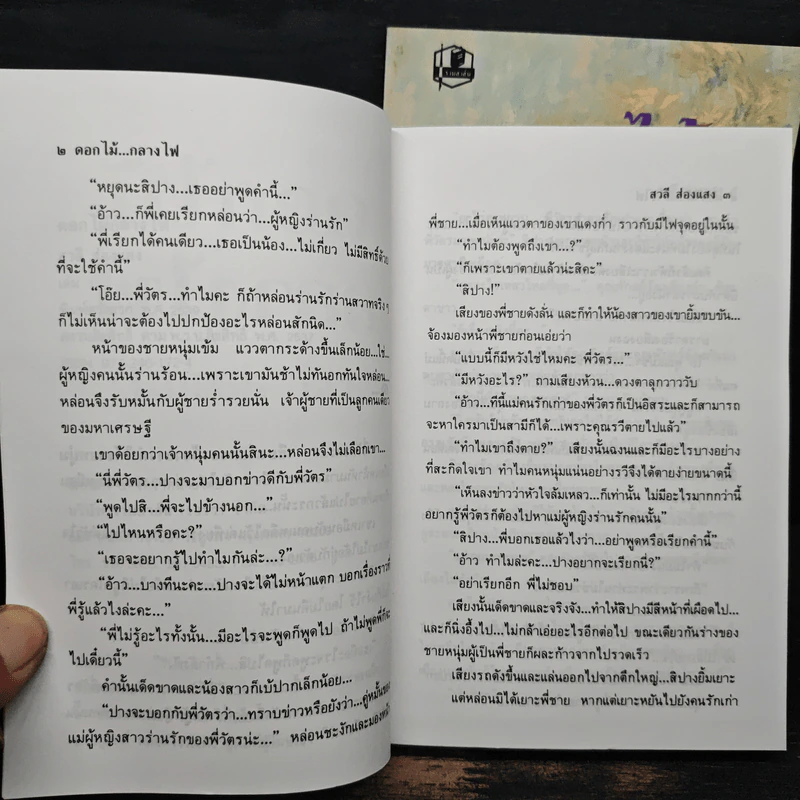 ๒ ดอกไม้...กลางไฟ
“หยุดนะสิปาง...เธออย่าพูดคำนี้...”
“อ้าว...ก็พี่เคยเรียกหล่อนว่า...ผู้หญิงร่านรัก”
“พี่เรียกได้คนเดียว...เธอเป็นน้อง...ไม่เกี่ยว ไม่มีสิทธิ์ด้วย
ที่จะใช้คำนี้”
“โอ๊ย...พี่วัตร...ทำไมคะ ก็ถ้าหล่อนร่านรักร่านสวาทจริง ๆ
ก็ไม่เห็นน่าจะต้องไปปกป้องอะไรหล่อนสักนิด...”
หน้าของชายหนุ่มเข้ม แววตากระด้างขึ้นเล็กน้อย...ใช่...
ผู้หญิงคนนั้นร่านร้อน...เพราะเขามันช้าไม่ทันอกทันใจหล่อน...
หล่อนจึงรับหมั้นกับผู้ชายร่ำรวยนั่น เจ้าผู้ชายที่เป็นลูกคนเดียว
ของมหาเศรษฐี
เขาด้อยกว่าเจ้าหนุ่มคนนั้นสินะ...หล่อนจึงไม่เลือกเขา...
“นี่พี่วัตร...ปางจะมาบอกข่าวดีกับพี่วัตร”
“พูดไปสิ...พี่จะไปข้างนอก...”
“ไปไหนหรือคะ?”
“เธอจะอยากรู้ไปทำไมกันล่ะ...?”
“อ้าว...บางทีนะคะ...ปางจะได้ไม่หน้าแตก บอกเรื่องราวที่
พี่รู้แล้วไงล่ะคะ...”
“พี่ไม่รู้อะไรทั้งนั้น...มีอะไรจะพูดก็พูดไป ถ้าไม่พูดพี่ก็จะ
ไปเดี๋ยวนี้”
คำนั้นเด็ดขาดและน้องสาวก็เบ้ปากเล็กน้อย...
“ปางจะบอกกับพี่วัตรว่า...ทราบข่าวหรือยังว่า...คู่หมั้นของ
แม่ผู้หญิงสาวร่านรักของพี่วัตรน่ะ...” หล่อนชะงักและมองหน้า
สวลี ส่องแสง ๓
พี่ชาย...เมื่อเห็นแววตาของเขาแดงก่ำ ราวกับมีไฟจุดอยู่ในนั้น
“ทำไมต้องพูดถึงเขา...?”
“ก็เพราะเขาตายแล้วน่ะสิคะ”
“สิปาง!”
เสียงของพี่ชายดังลั่น และก็ทำให้น้องสาวของเขายิ้มขบขัน...
จ้องมองหน้าพี่ชายก่อนเอ่ยว่า
“แบบนี้ก็มีหวังใช่ไหมคะ พี่วัตร...”
“มีหวังอะไร?” ถามเสียงห้วน...ดวงตาลุกวาววับ
“อ้าว...ทีนี้แม่คนรักเก่าของพี่วัตรก็เป็นอิสระและก็สามารถ
จะหาใครมาเป็นสามีก็ได้...เพราะคุณรวีตายไปแล้ว”
“ทำไมเขาถึงตาย?” เสียงนั้นฉงนและก็มีอะไรบางอย่าง
ที่สะกิดใจเขา ทำไมคนหนุ่มแน่นอย่างรวีจึงได้ตายง่ายขนาดนี้
“เห็นลงข่าวว่าหัวใจล้มเหลว...ก็เท่านั้น ไม่มีอะไรมากกว่านี้
อยากรู้พี่วัตรก็ต้องไปหาแม่ผู้หญิงร่านรักคนนั้น”
“สิปาง...พี่บอกเธอแล้วไงว่า...อย่าพูดหรือเรียกคำนี้”
“อ้าว ทำไมล่ะคะ...ปางอยากจะเรียกนี่?”
“อย่าเรียกอีก พี่ไม่ชอบ”
เสียงนั้นเด็ดขาดและจริงจัง...ทำให้สิปางมีสีหน้าที่เผือดไป...
และก็นิ่งอึ้งไป...ไม่กล้าเอ่ยอะไรอีกต่อไป ขณะเดียวกันร่างของ
ชายหนุ่มผู้เป็นพี่ชายก็ผละก้าวจากไปรวดเร็ว
เสียงรถดังขึ้นและแล่นออกไปจากตึกใหญ่...สิปางยิ้มเยาะ
แต่หล่อนมิได้เยาะพี่ชาย หากแต่เยาะหยันไปยังคนรักเก่า